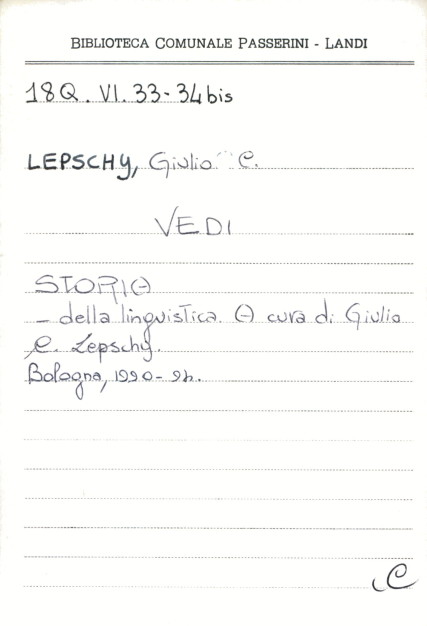 BIBLIOTECA COMUNALE PASSERINI - LANDI
18Q. VI. 33-34bis
LEPSCHY, Giulio C.
VEDI
STORIA
- della linguistica. A cura di Giulio
C. Lepschy.
Bologna, 1990-94.
C